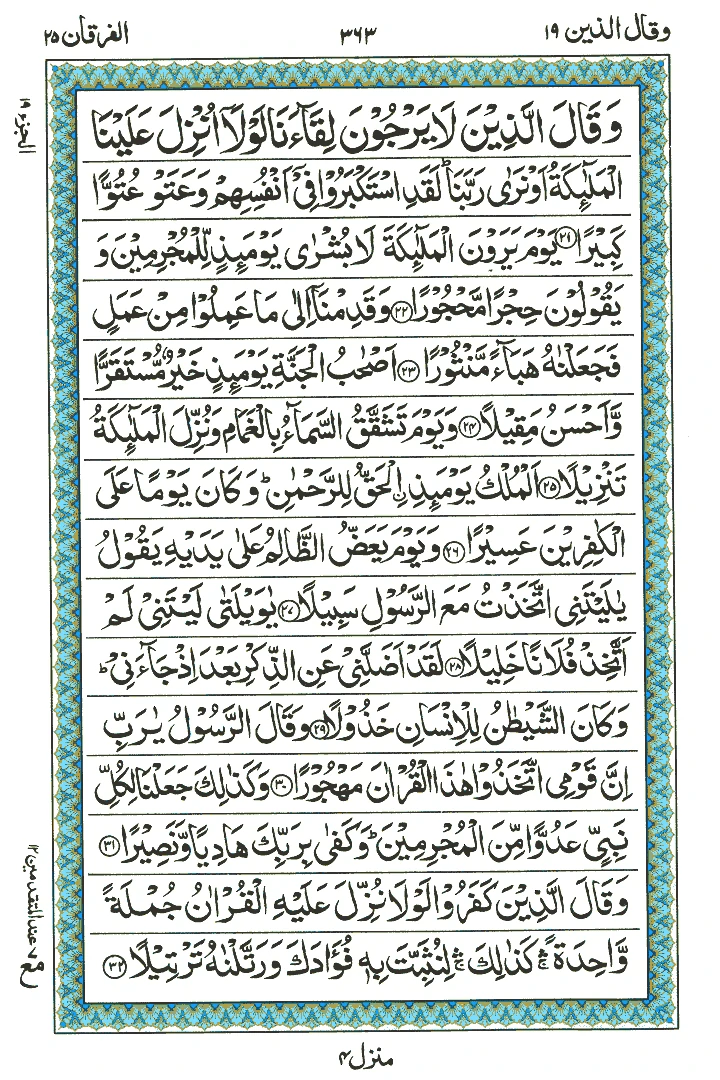 وقال الذین ۱۹
۳۶۳
الفرقان ۲۵
الجزء ۱۹
وَقَالَ الَّذِيْنَ لَا يَرْجُوْنَ لِقَآءَنَا لَوْلَآ اُنْزِلَ عَلَيْنَا
الْمَلٰٓئِكَةُ اَوْ نَرٰى رَبَّنَا ؕ لَقَدِ اسْتَكْبَرُوْا فِيْٓ اَنْفُسِهِمْ وَعَتَوْ عُتُوًّا
كَبِيْرًا ۲۱ يَوْمَ يَرَوْنَ الْمَلٰٓئِكَةَ لَا بُشْرٰى يَوْمَئِذٍ لِّلْمُجْرِمِيْنَ وَ
يَقُوْلُوْنَ حِجْرًا مَّحْجُوْرًا ۲۲ وَقَدِمْنَآ اِلٰى مَا عَمِلُوْا مِنْ عَمَلٍ
فَجَعَلْنٰهُ هَبَآءً مَّنْثُوْرًا ۲۳ اَصْحٰبُ الْجَنَّةِ يَوْمَئِذٍ خَيْرٌ مُّسْتَقَرًّا
وَّاَحْسَنُ مَقِيْلًا ۲۴ وَيَوْمَ تَشَقَّقُ السَّمَآءُ بِالْغَمَامِ وَنُزِّلَ الْمَلٰٓئِكَةُ
تَنْزِيْلًا ۲۵ اَلْمُلْكُ يَوْمَئِذِ ِۨالْحَقُّ لِلرَّحْمٰنِ ؕ وَكَانَ يَوْمًا عَلَى
الْكٰفِرِيْنَ عَسِيْرًا ۲۶ وَيَوْمَ يَعَضُّ الظَّالِمُ عَلٰى يَدَيْهِ يَقُوْلُ
يٰلَيْتَنِى اتَّخَذْتُ مَعَ الرَّسُوْلِ سَبِيْلًا ۲۷ يٰوَيْلَتٰى لَيْتَنِيْ لَمْ
اَتَّخِذْ فُلَانًا خَلِيْلًا ۲۸ لَقَدْ اَضَلَّنِيْ عَنِ الذِّكْرِ بَعْدَ اِذْ جَآءَنِيْ ؕ
وَكَانَ الشَّيْطٰنُ لِلْاِنْسَانِ خَذُوْلًا ۲۹ وَقَالَ الرَّسُوْلُ يٰرَبِّ
اِنَّ قَوْمِى اتَّخَذُوْا هٰذَا الْقُرْاٰنَ مَهْجُوْرًا ۳۰ وَكَذٰلِكَ جَعَلْنَا لِكُلِّ
نَبِيٍّ عَدُوًّا مِّنَ الْمُجْرِمِيْنَ ؕ وَكَفٰى بِرَبِّكَ هَادِيًا وَّنَصِيْرًا ۳۱
وَقَالَ الَّذِيْنَ كَفَرُوْا لَوْلَا نُزِّلَ عَلَيْهِ الْقُرْاٰنُ جُمْلَةً
وَّاحِدَةً ۛۚ كَذٰلِكَ ۛۚ لِنُثَبِّتَ بِهٖ فُؤَادَكَ وَرَتَّلْنٰهُ تَرْتِيْلًا ۳۲
مع ۷ عند المتقدمین ۱۲
منزل ۴